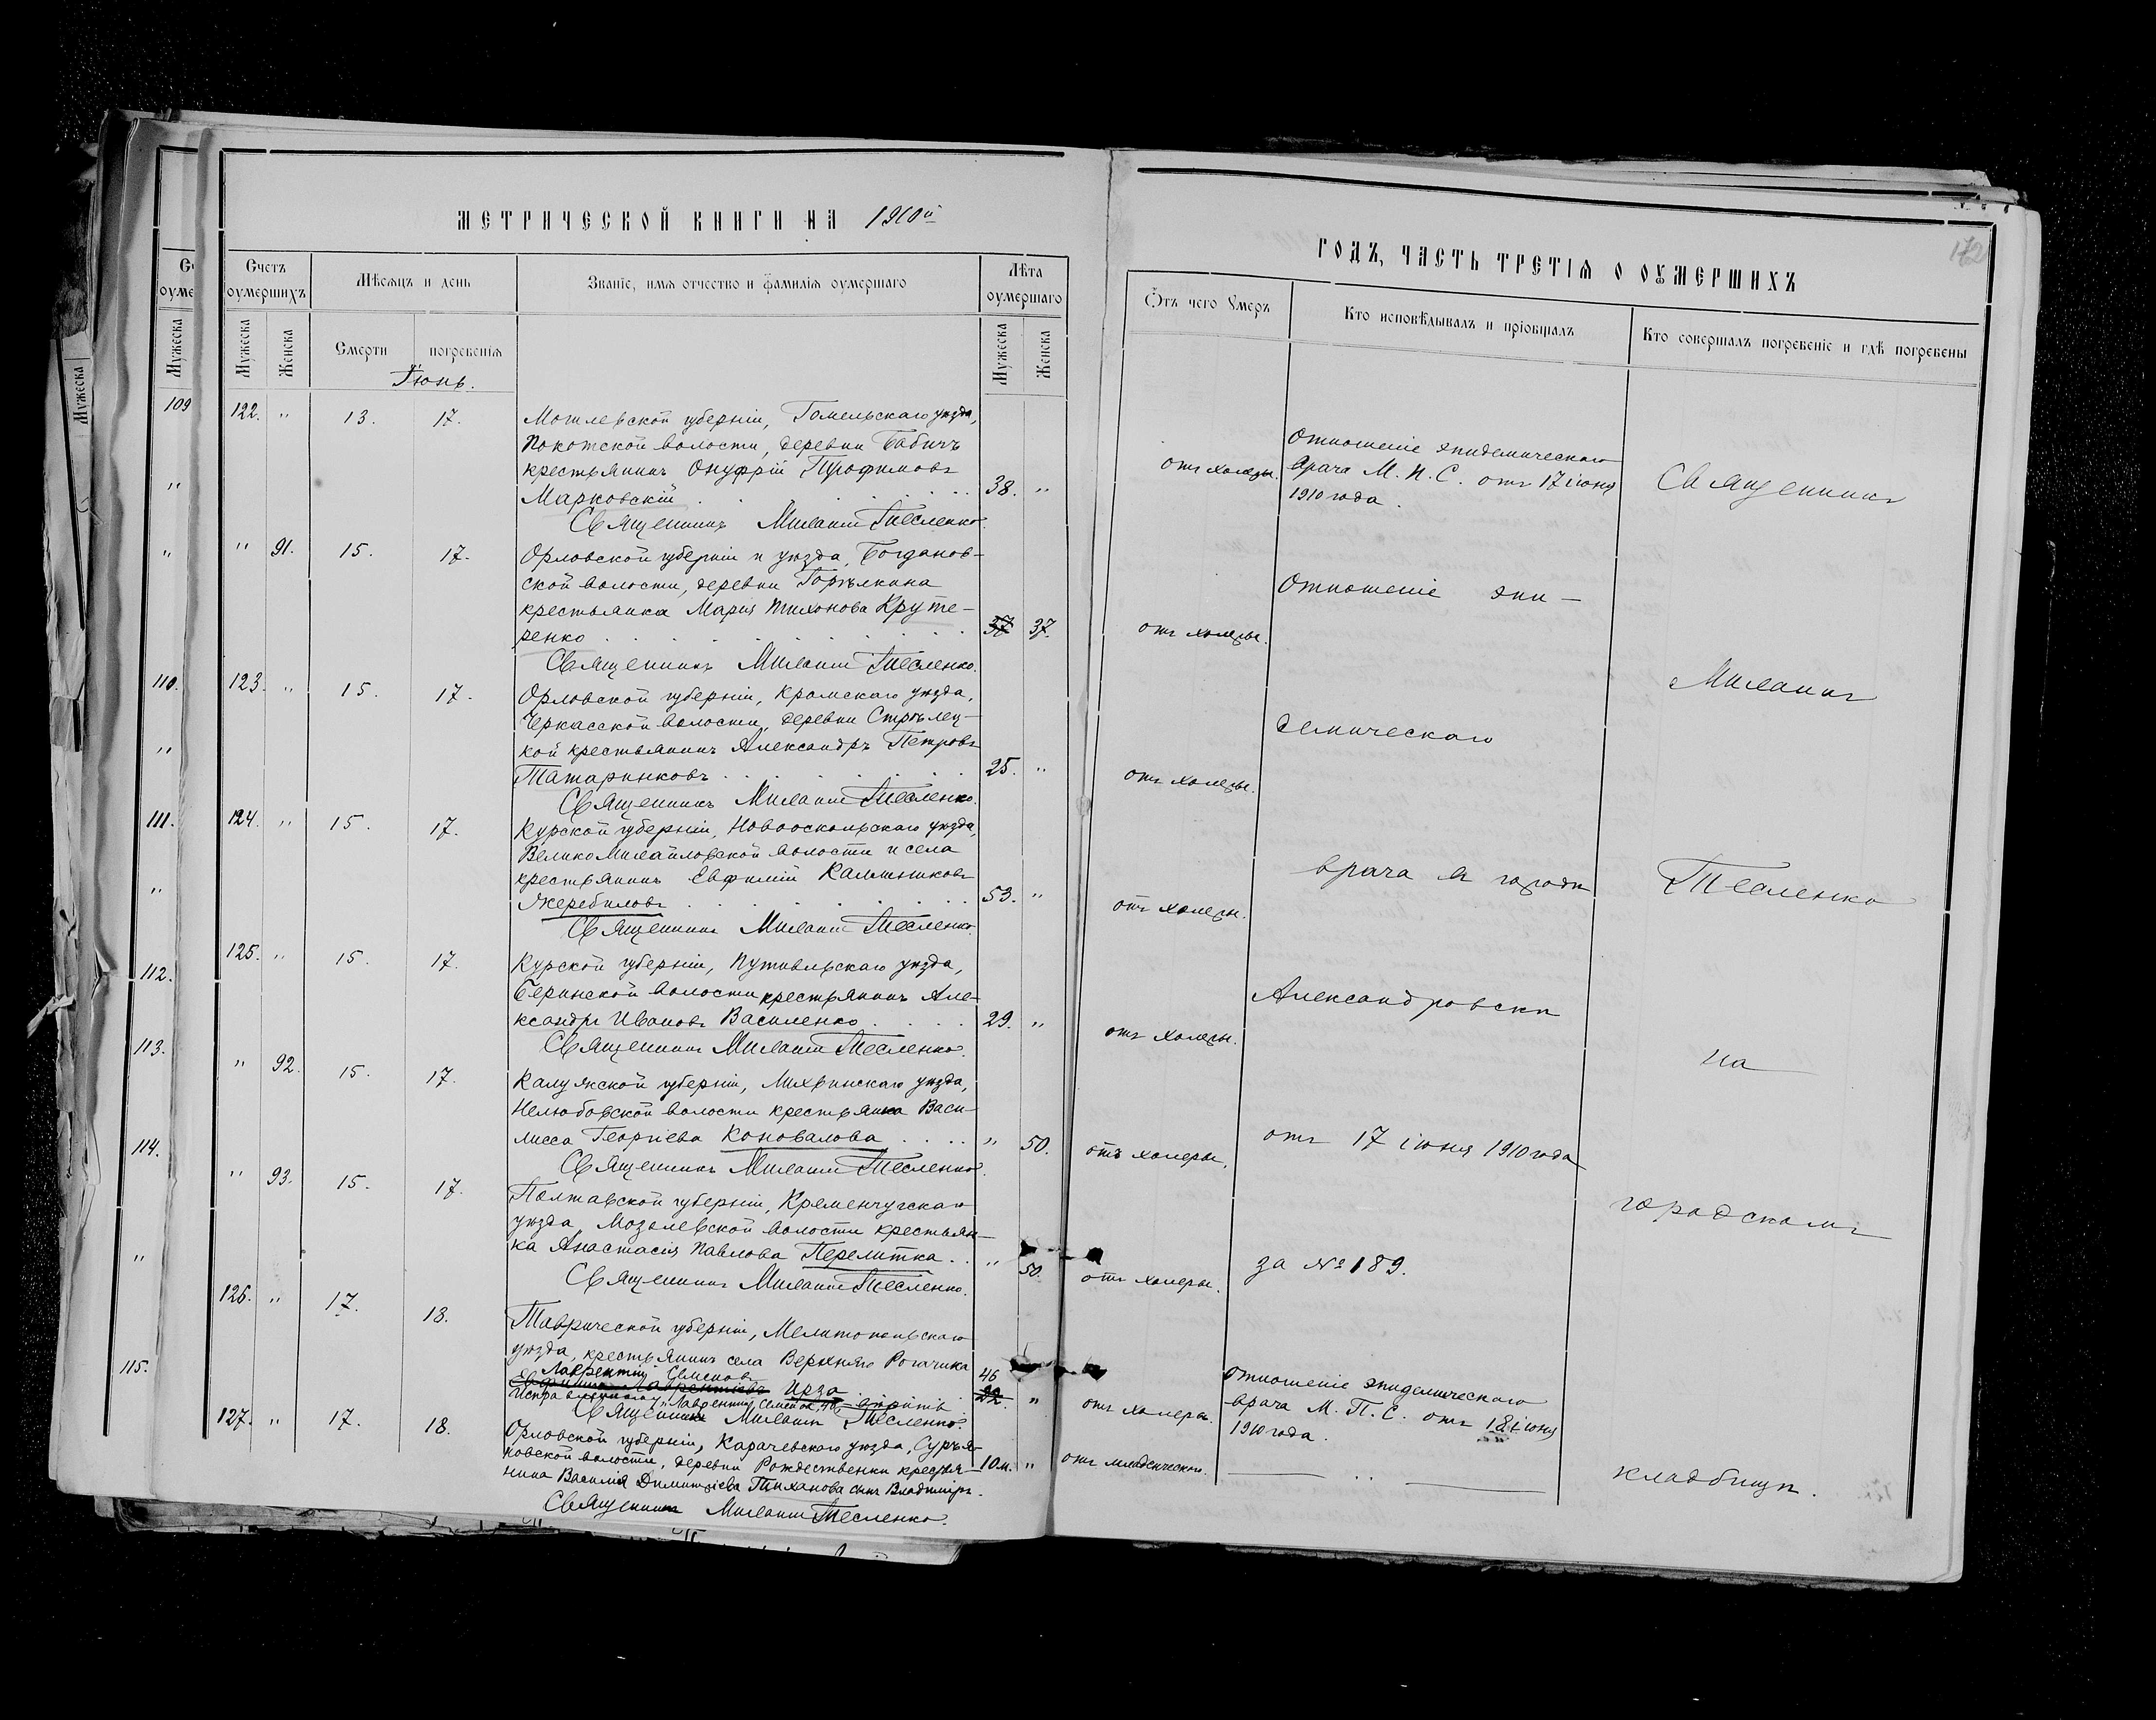 МЕТРИЧЕСКОЙ КНИГИ НА 1910й
Счетъ оумершихъ
Мѣсяцъ и день
Званіе, имя отчество и фамилія оумершаго
Лѣта оумершаго
Мужеска
Женска
Смерти
погребенія
Мужеска
Женска
Іюнь.
122. " 13. 17. Могилевской губерніи, Гомельскаго уѣзда,
Покотской волости, деревни Бабичъ
крестьянинъ Онуфрій Трофимовъ
Марковскій 38. "
Священникъ Милатій Тесленко.
" 91. 15. 17. Орловской губерніи и уѣзда, Богданов-
ской волости, деревни Горѣлкина
крестьянка Марія Тихонова Круте-
ренко 37 37.
Священникъ Милатій Тесленко.
123. " 15. 17. Орловской губерніи, Кромскаго уѣзда,
Черкасской волости, деревни Стрѣлец-
кой крестьянинъ Александръ Петровъ
Татаринковъ 25. "
Священникъ Милатій Тесленко.
124. " 15. 17. Курской губерніи, Новооскольскаго уѣзда,
ВеликоМихайловской волости и села
крестьянинъ Евфимій Калинниковъ
Жеребиловъ 53. "
Священникъ Милатій Тесленко.
125. " 15. 17. Курской губерніи, Путивльскаго уѣзда,
Беринской волости крестьянинъ Але-
ксандръ Ивановъ Василенко 29. "
Священникъ Милатій Тесленко.
" 92. 15. 17. Калужской губерніи, Лихвинскаго уѣзда,
Нелюбовской волости крестьянка Васи-
лисса Георгіева Коновалова " 50.
Священникъ Милатій Тесленко.
" 93. 15. 17. Полтавской губерніи, Кременчугскаго
уѣзда, Мозолевской волости крестьян-
ка Анастасія Павлова Перелитка " 50.
Священникъ Милатій Тесленко.
126. " 17. 18. Таврической губерніи, Мелитопольскаго
уѣзда, крестьянинъ села Верхняго Рогачика
Лаврентій Семеновъ 46
Ирза 22. "
Исправленному "Лаврентій Семеновъ, 46"
Священникъ Милатій Тесленко.
127. " 17. 18. Орловской губерніи, Карачевскаго уѣзда, Сурья-
новской волости, деревни Рождественки крестья-
нина Василія Димитріева Тиханова сынъ Владиміръ. 10м. "
Священникъ Милатій Тесленко.
109
"
"
110.
"
111.
"
112.
113.
114.
"
115.
172
ГОДЪ, ЧАСТЬ ТРЕТІЯ О ОУМЕРШИХЪ
Ѿтъ чего Умеръ
Кто исповѣдывалъ и пріобщалъ
Кто совершалъ погребеніе и гдѣ погребены
отъ холеры.
Отношеніе эпидемическаго
врача М. П. С. отъ 17 іюня
1910 года.
Священникъ
отъ холеры.
Отношеніе эпи-
Милатій
отъ холеры.
демическаго
отъ холеры.
врача г. города
Тесленко
отъ холеры.
Александровска
на
отъ холеры.
отъ 17 іюня 1910 года
городскомъ
отъ холеры.
за № 189.
отъ холеры.
Отношеніе эпидемическаго
врача М. П. С. отъ 18 іюня
1910 года.
отъ младенческой.
"
кладбищѣ.